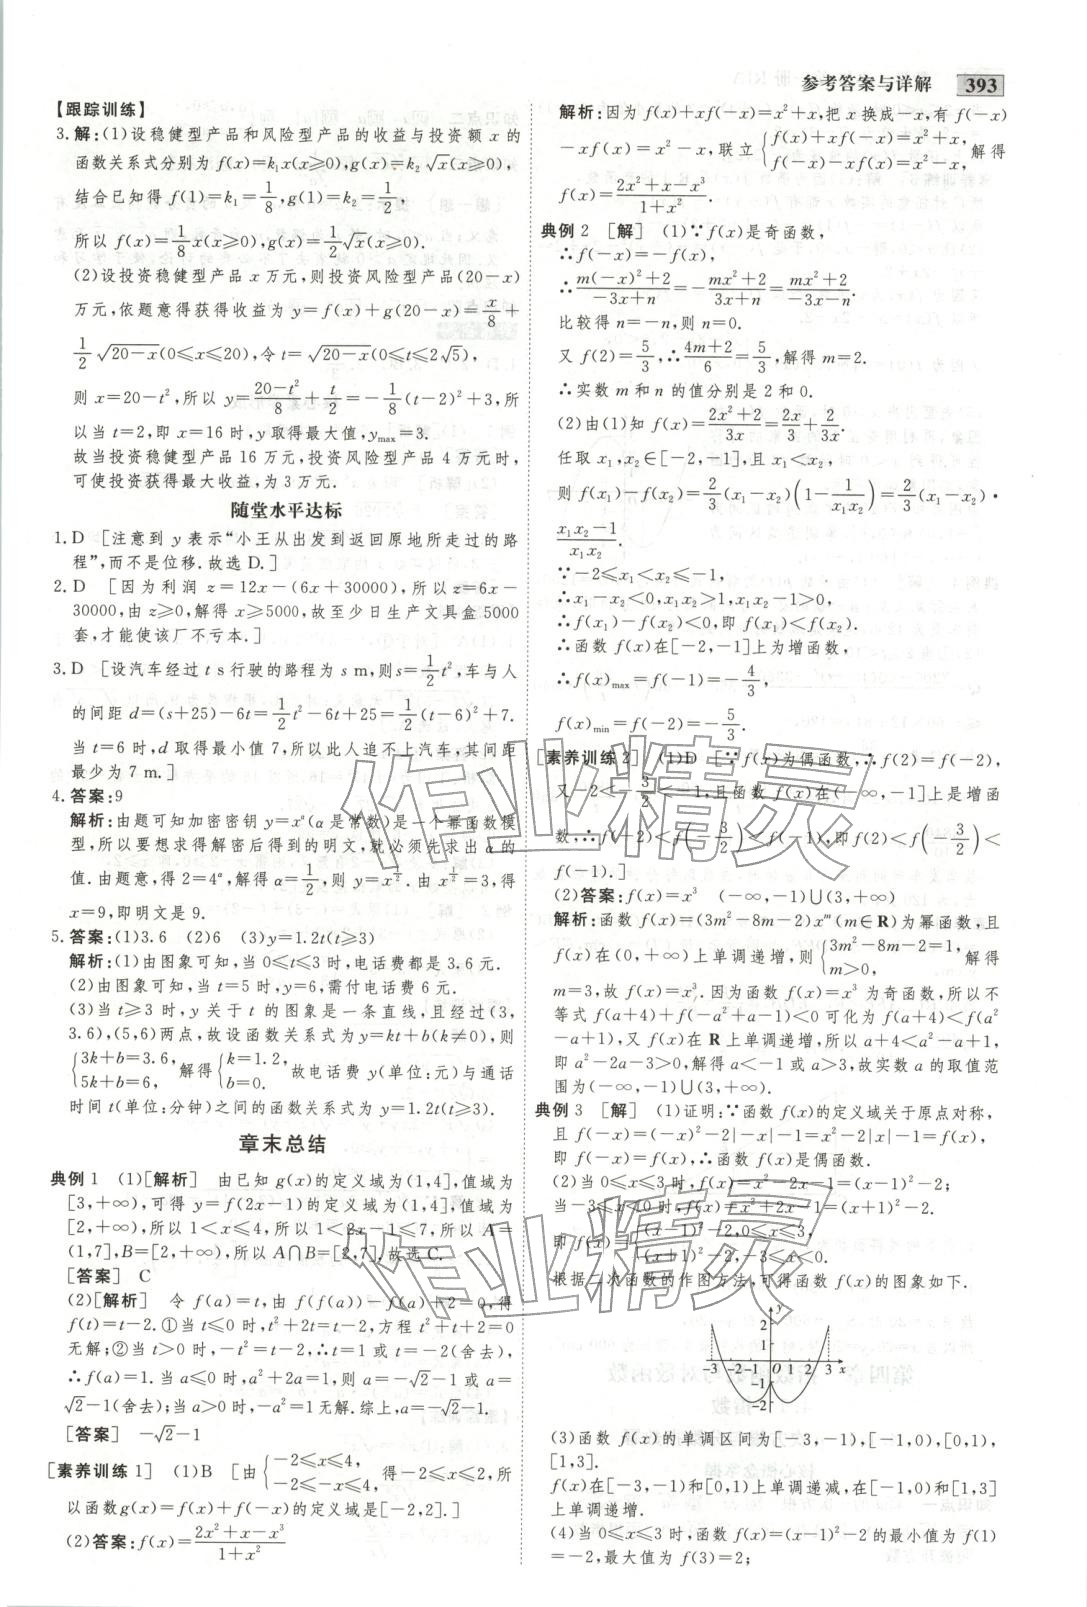 参考答案与详解 393
【跟踪训练】
3.解:(1)设稳健型产品和风险型产品的收益与投资额 x 的
函数关系式分别为 f(x)=k₁x(x≥0),g(x)=k₂√x(x≥0),
结合已知得 f(1)=k₁=1/8,g(1)=k₂=1/2,
所以 f(x)=1/8 x(x≥0),g(x)=1/2 √x(x≥0).
(2)设投资稳健型产品 x 万元,则投资风险型产品(20-x)
万元,依题意得获得收益为 y=f(x)+g(20-x)=x/8+
1/2 √(20-x)(0≤x≤20),令 t=√(20-x)(0≤t≤2√5),
则 x=20-t²,所以 y=(20-t²)/8+t/2=-1/8(t-2)²+3,所
以当 t=2,即 x=16 时,y 取得最大值,y_max=3.
故当投资稳健型产品 16 万元,投资风险型产品 4 万元时,
可使投资获得最大收益,为 3 万元.
随堂水平达标
1.D [注意到 y 表示“小王从出发到返回原地所走过的路
程”,而不是位移.故选 D.]
2.D [因为利润 z=12x-(6x+30000),所以 z=6x-
30000,由 z≥0,解得 x≥5000,故至少日生产文具盒5000
套,才能使该厂不亏本.]
3.D [设汽车经过 t s 行驶的路程为 s m,则s=1/2 t²,车与人
的间距 d=(s+25)-6t=1/2 t²-6t+25=1/2(t-6)²+7.
当 t=6 时,d 取得最小值 7,所以此人追不上汽车,其间距
最少为 7 m.]
4.答案:9
解析:由题可知加密密钥 y=xᵅ(α 是常数)是一个幂函数模
型,所以要想求得解密后得到的明文,就必须先求出 α 的
值.由题意,得 2=4ᵅ,解得 α=1/2,则 y=x^(1/2).由 x^(1/2)=3,得
x=9,即明文是 9.
5.答案:(1)3.6 (2)6 (3)y=1.2t(t≥3)
解析:(1)由图象可知,当 0≤t≤3 时,电话费都是 3.6 元.
(2)由图象可知,当 t=5 时,y=6,需付电话费 6 元.
(3)当 t≥3 时,y 关于 t 的图象是一条直线,且经过(3,
3.6),(5,6)两点,故设函数关系式为 y=kt+b(k≠0),则
{3k+b=3.6, 5k+b=6, 解得{k=1.2, b=0. 故电话费 y(单位:元)与通话
时间 t(单位:分钟)之间的函数关系式为 y=1.2t(t≥3).
章末总结
典例 1 (1)[解析] 由已知 g(x)的定义域为(1,4],值域为
[3,+∞),可得 y=f(2x-1)的定义域为(1,4],值域为
[2,+∞),所以 1<x≤4,所以 1<2x-1≤7,所以 A=
(1,7],B=[2,+∞),所以 A∩B=[2,7],故选 C.
[答案] C
(2)[解析] 令 f(a)=t,由 f(f(a))-f(a)+2=0,得
f(t)=t-2.①当 t≤0 时,t²+2t=t-2,方程 t²+t+2=0
无解;②当 t>0 时,-t²=t-2,解得 t=1 或 t=-2(舍去),
∴f(a)=1.当 a≤0 时,a²+2a=1,则 a=-√2-1 或 a=
√2-1(舍去),当 a>0 时,-a²=1 无解.综上,a=-√2-1.
[答案] -√2-1
[素养训练 1] (1)B [由{-2≤x≤4, -2≤-x≤4, 得-2≤x≤2,所
以函数g(x)=f(x)+f(-x)的定义域是[-2,2].]
(2)答案:f(x)=(2x²+x-x³)/(1+x²)
解析:因为 f(x)+xf(-x)=x²+x,把 x 换成-x,有 f(-x)
-xf(x)=x²-x,联立{f(x)+xf(-x)=x²+x, f(-x)-xf(x)=x²-x, 解得
f(x)=(2x²+x-x³)/(1+x²).
典例 2 [解] (1)∵f(x)是奇函数,
∴f(-x)=-f(x),
∴(m(-x)²+2)/(-3x+n)=-(mx²+2)/(3x+n)=(mx²+2)/(-3x-n).
比较得 n=-n,则 n=0.
又 f(2)=5/3,∴(4m+2)/6=5/3,解得 m=2.
∴实数 m 和 n 的值分别是 2 和 0.
(2)由(1)知 f(x)=(2x²+2)/3x=2x/3+2/3x.
任取 x₁,x₂∈[-2,-1],且 x₁<x₂,
则 f(x₁)-f(x₂)=2/3(x₁-x₂)(1-1/(x₁x₂))=2/3(x₁-x₂)·
(x₁x₂-1)/(x₁x₂).
∵-2≤x₁<x₂≤-1,
∴x₁-x₂<0,x₁x₂>1,x₁x₂-1>0,
∴f(x₁)-f(x₂)<0,即 f(x₁)<f(x₂).
∴函数 f(x)在[-2,-1]上为增函数,
∴f(x)max=f(-1)=-4/3,
f(x)min=f(-2)=-5/3.
[素养训练 2] (1)D [∵f(x)为偶函数,∴f(-2)=f(2),
又-2<-3/2<-1,且函数 f(x)在(-∞,-1]上是增函
数,∴f(-2)<f(-3/2)<f(-1),即 f(2)<f(-3/2)<
f(-1).]
(2)答案:f(x)=x³ (-∞,-1)∪(3,+∞)
解析:函数 f(x)=(3m²-8m-2)xᵐ(m∈R)为幂函数,且
f(x)在(0,+∞)上单调递增,所以{3m²-8m-2=1, m>0, 解得
m=3,故 f(x)=x³.因为函数 f(x)=x³ 为奇函数,所以不
等式 f(a+4)+f(-a²+a-1)<0 可化为 f(a+4)<f(a²
-a+1),又 f(x)在 R 上单调递增,所以 a+4<a²-a+1,
即 a²-2a-3>0,解得 a<-1 或 a>3,故 a 的取值范
围为(-∞,-1)∪(3,+∞).
典例 3 [解] (1)证明:∵函数 f(x)的定义域关于原点对称,
且 f(-x)=(-x)²-2|-x|-1=x²-2|x|-1=f(x),
即 f(-x)=f(x),∴函数 f(x)是偶函数.
(2)当 0≤x≤3 时,f(x)=x²-2x-1=(x-1)²-2;
当-3≤x<0 时,f(x)=x²+2x-1=(x+1)²-2.
即 f(x)={(x-1)²-2,0≤x≤3, (x+1)²-2,-3≤x<0.
根据二次函数的作图方法,可得函数 f(x)的图象如下.
y
2
1
-3 -2 -1 O 1 2 3 x
-1
-2
(3)函数 f(x)的单调区间为[-3,-1),[-1,0),[0,1),
[1,3].
f(x)在[-3,-1)和[0,1)上单调递减,在[-1,0)和[1,3]
上单调递增.
(4)当 0≤x≤3 时,函数 f(x)=(x-1)²-2 的最小值为 f(1)
=-2,最大值为 f(3)=2;
作业精灵
作业精灵